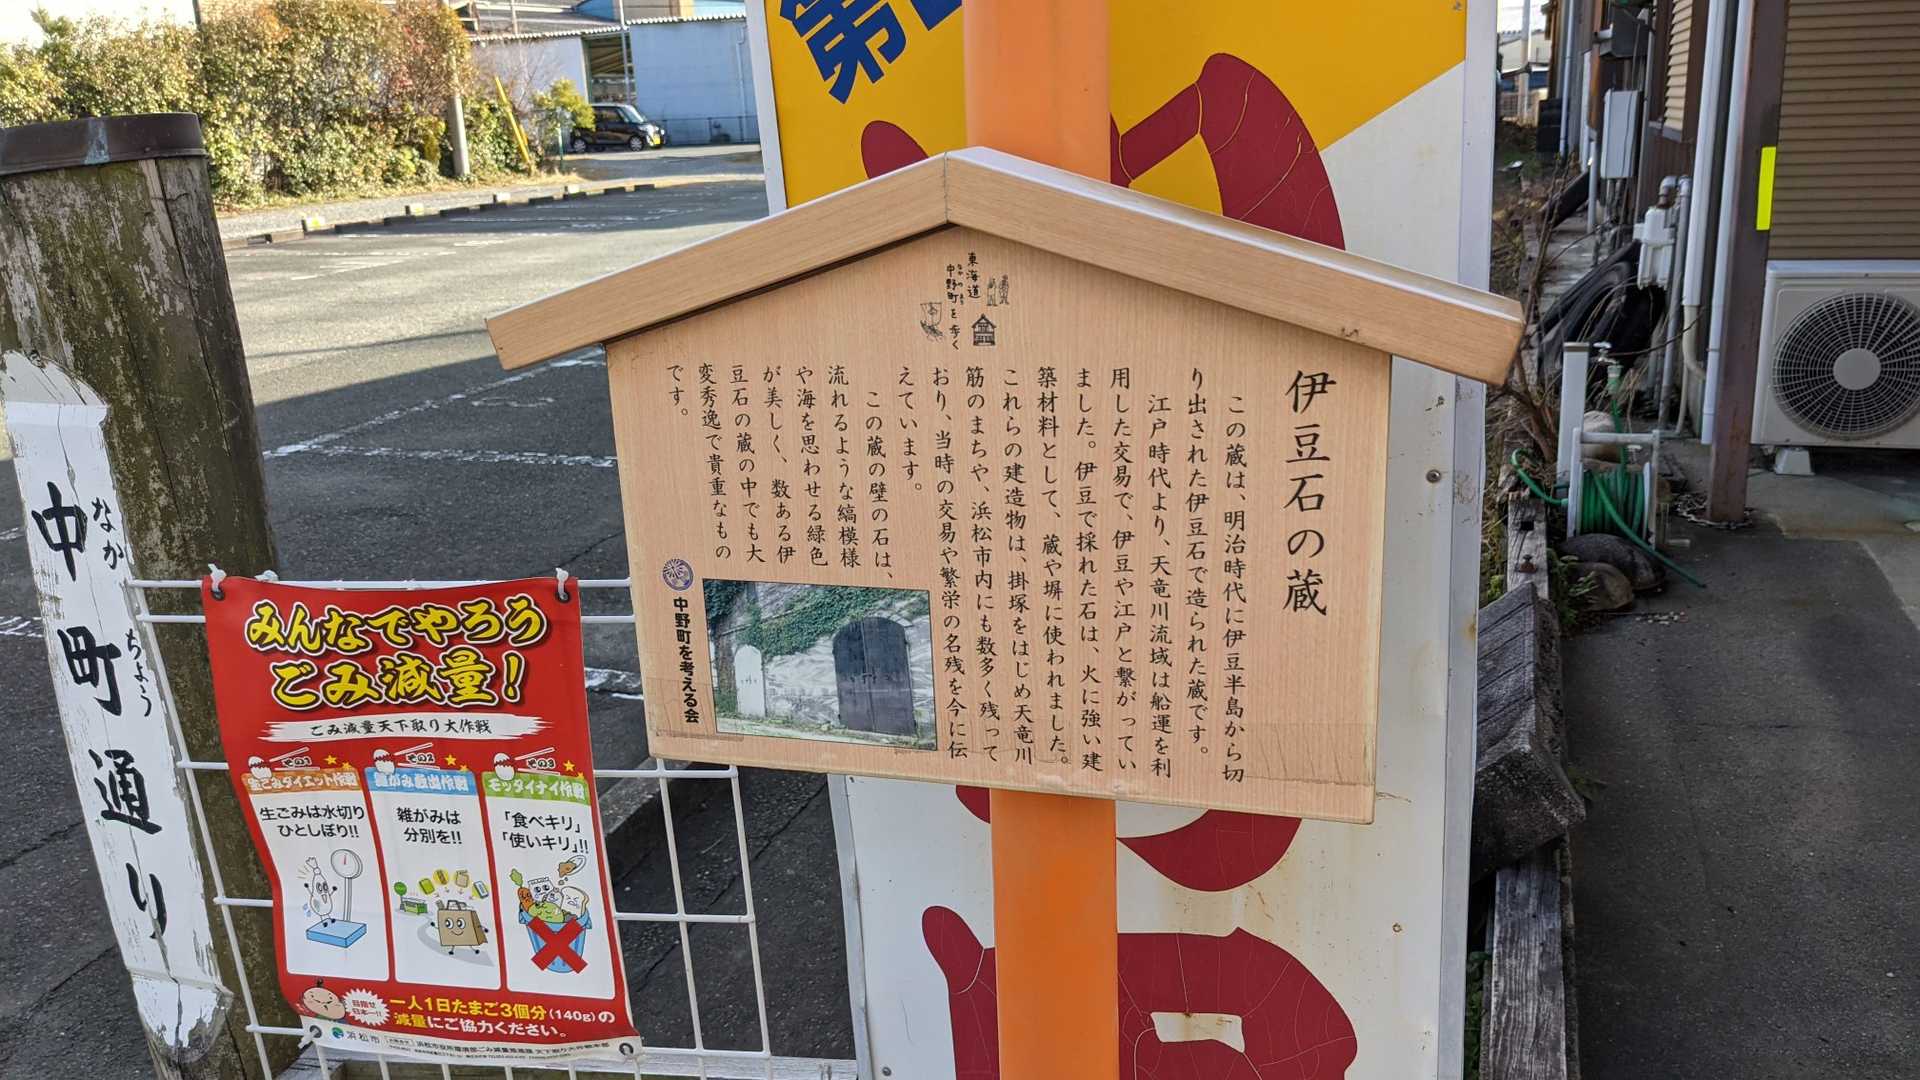 第
東海道
なかのまち
中野町を歩く
伊豆石の蔵
この蔵は、明治時代に伊豆半島から切
り出された伊豆石で造られた蔵です。
江戸時代より、天竜川流域は船運を利
用した交易で、伊豆や江戸と繋がってい
ました。伊豆で採れた石は、火に強い建
築材料として、蔵や塀に使われました。
これらの建造物は、掛塚をはじめ天竜川
筋のまちや、浜松市内にも数多く残って
おり、当時の交易や繁栄の名残を今に伝
えています。
この蔵の壁の石は、
流れるような縞模様
や海を思わせる緑色
が美しく、数ある伊
豆石の蔵の中でも大
変秀逸で貴重なもの
です。
中野町を考える会
なかちょう
中町通り
みんなでやろう
ごみ減量!
ごみ減量天下取り大作戦
その1
生ごみダイエット作戦
生ごみは水切り
ひとしぼり!!
その2
雑がみ救出作戦
雑がみは
分別を!!
その3
モッタイナイ作戦
「食べキリ」
「使いキリ」!!
目指せ
日本一!!
一人1日たまご3個分(140g)の
減量にご協力ください。
浜松市